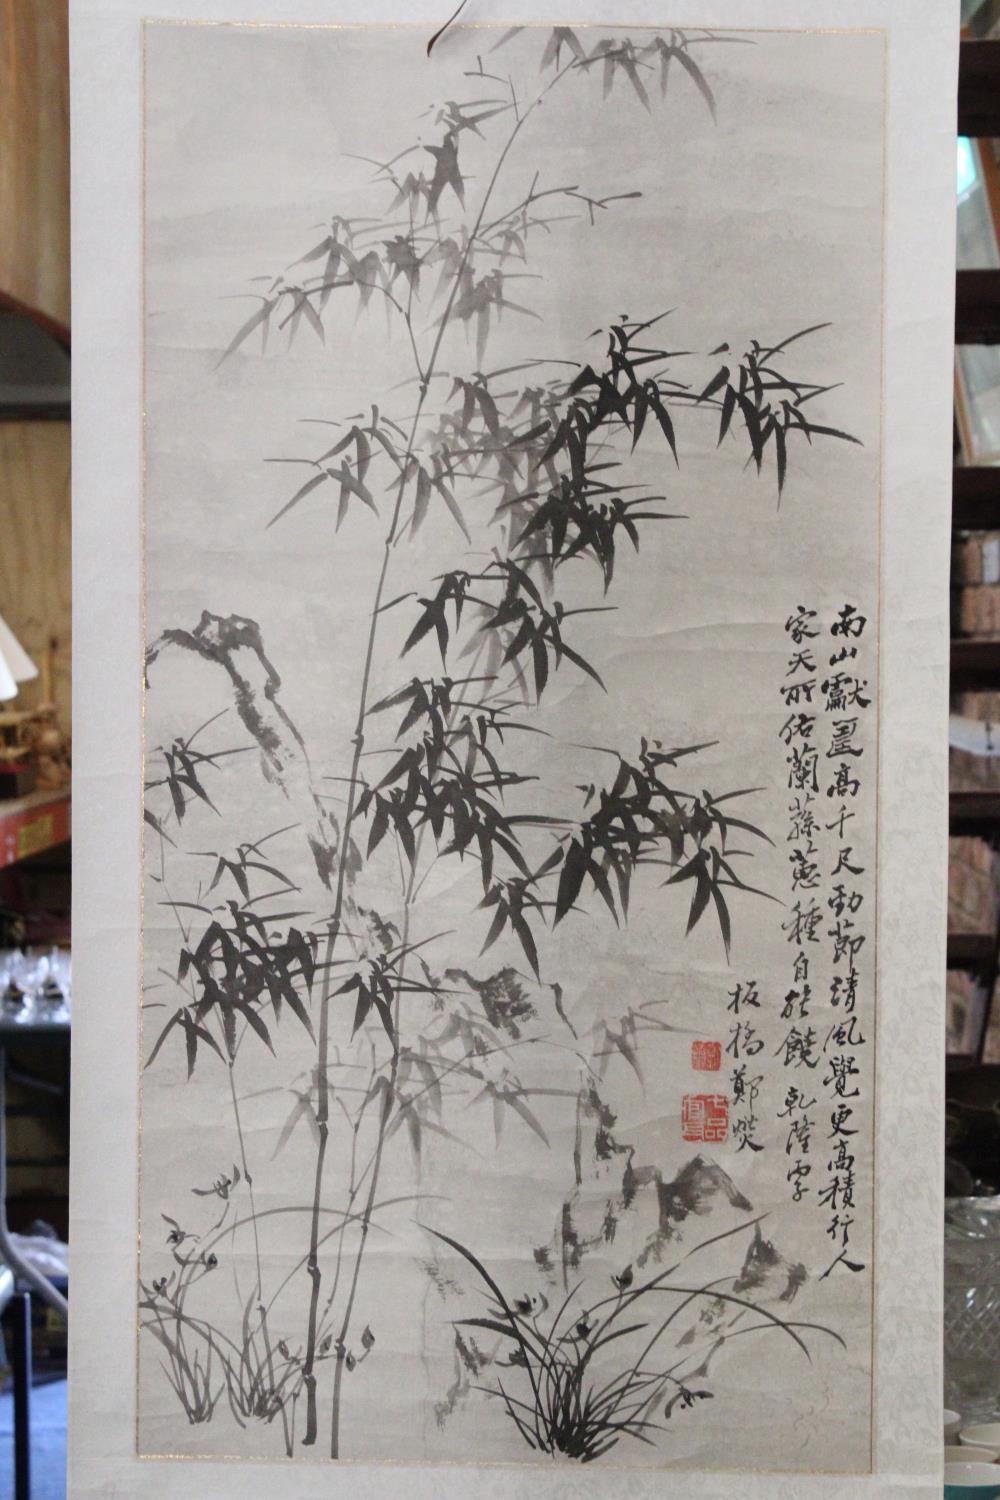 南山獻壽高千尺勁節清風覺更高積行人
家天所佑蘭蓀蕙種自能饒 乾隆
板橋鄭燮
七品官耳